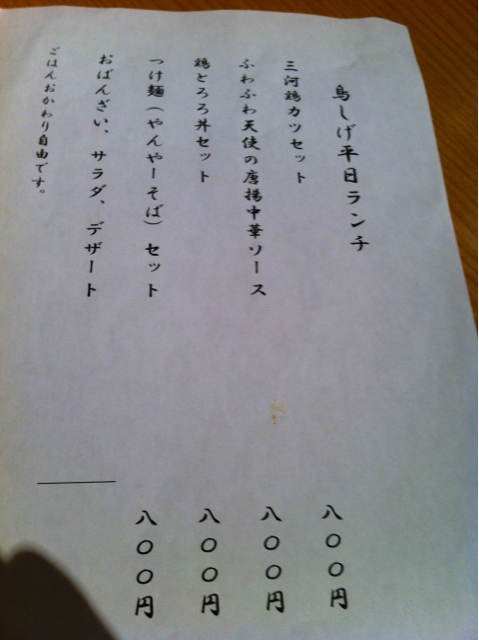 鳥しげ平日ランチ
三河鶏カツセット
八〇〇円
ふわふわ天使の唐揚中華ソース
八〇〇円
鶏とろろ丼セット
八〇〇円
つけ麺（やんやーそば）セット
八〇〇円
おばんざい、サラダ、デザート
ごはんおかわり自由です。